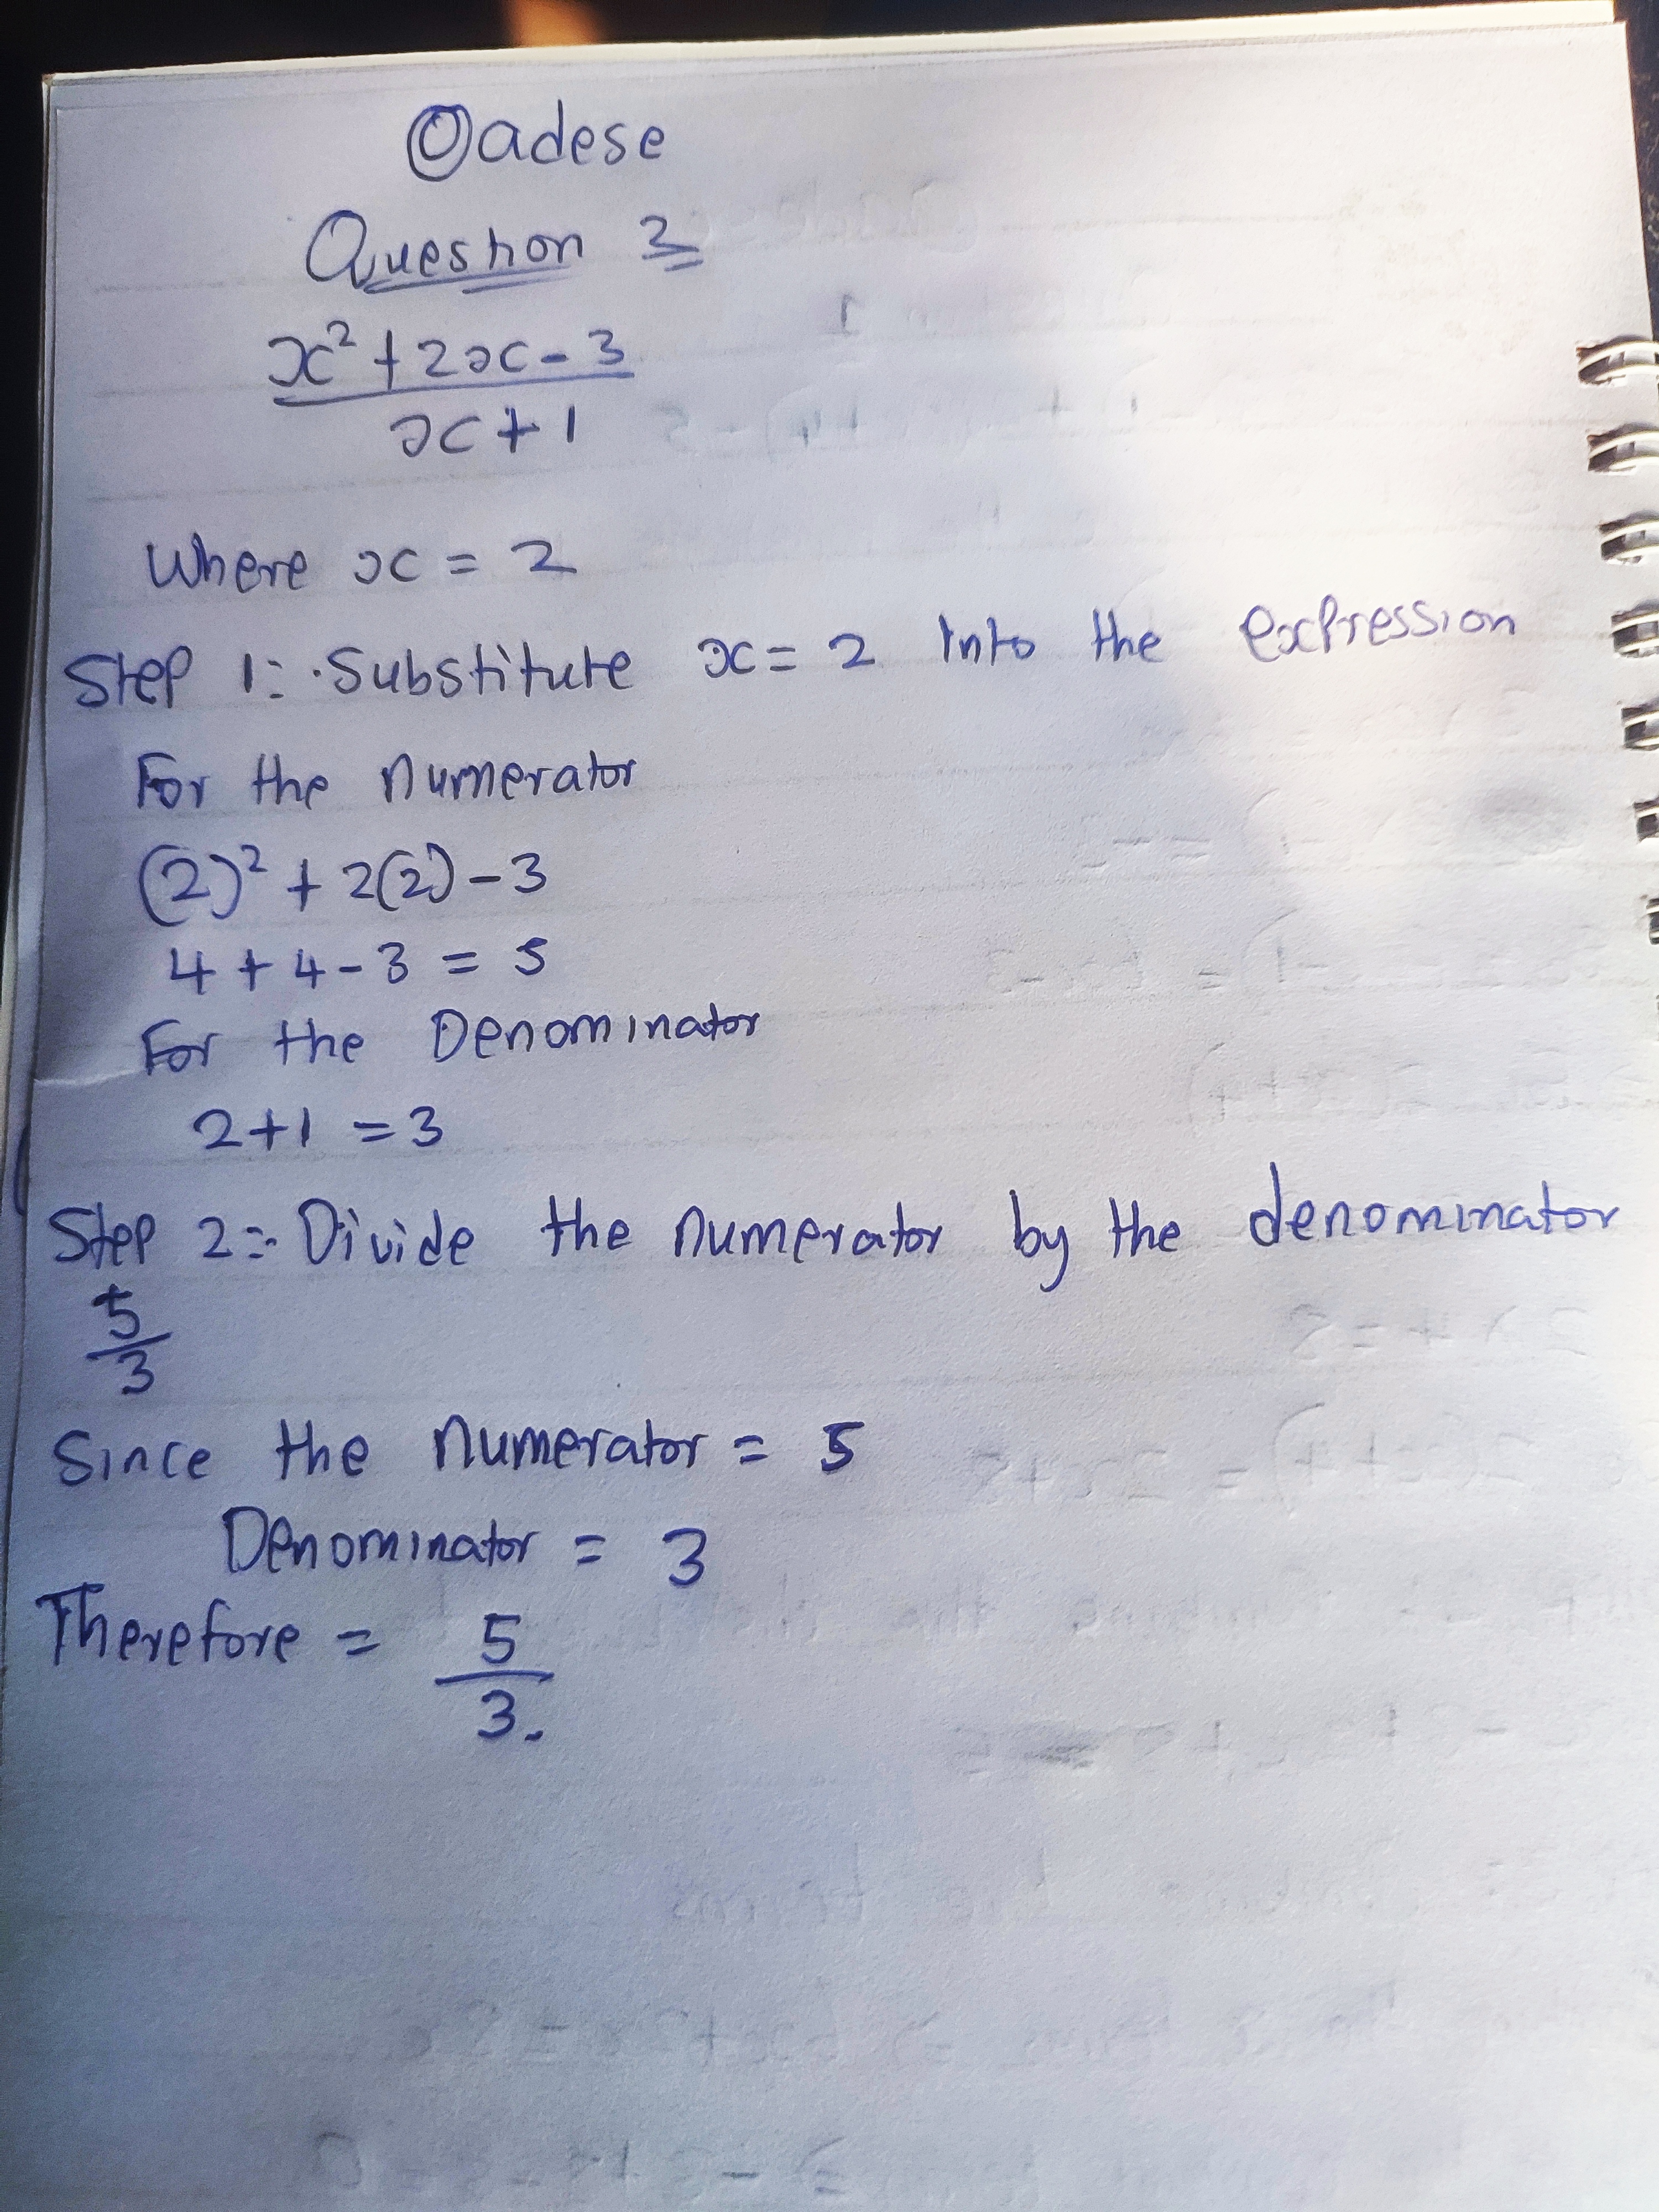 Oadese
Question 3
x² + 2x - 3
x + 1
Where x = 2
Step 1:- Substitute x = 2 Into the expression
For the numerator
(2)² + 2(2) - 3
4 + 4 - 3 = 5
For the Denominator
2 + 1 = 3
Step 2:- Divide the numerator by the denominator
5
3
Since the numerator = 5
Denominator = 3
Therefore = 5
3.